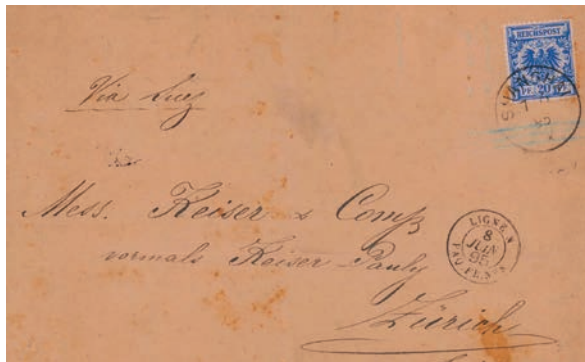 REICHSPOST
20
SHANGHAI
Via Suez
Mess. Keiser & Comp.
vormals Keiser Pauly
Zürich
LIGNE N
8
JUIN
95
PAQ. FR. Nº